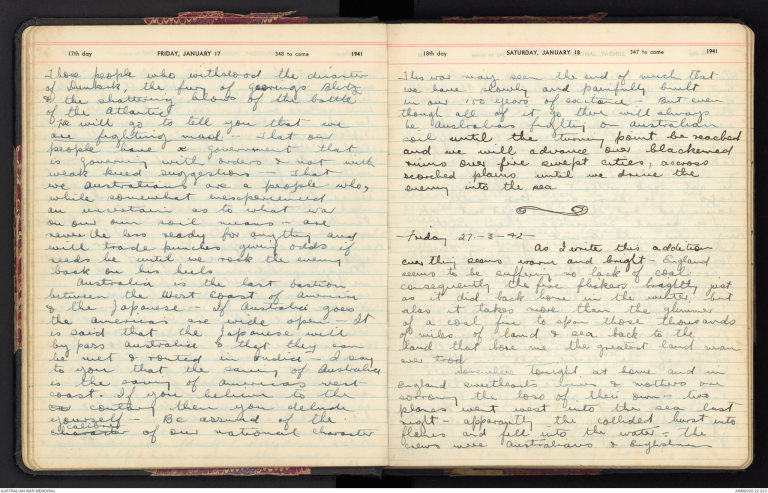 17th day FRIDAY, JANUARY 17 348 to come 1941
Those people who withstood the disaster
of Dunkirk, the fury of Goerings Blitz
& the shattering blows of the battle
of the Atlantic
We will go to tell you that we
are fighting mad - That our
people have a government that
is governing with orders & not with
weak kneed suggestions - That
we Australians are a people who,
while somewhat inexperienced
an uncertain as to what war
on our own soil means - are
never the less ready for anything and
will trade punches giving odds if
needs be until we rock the enemy
back on his heels
Australia is the last bastion
between the West coast of America
& the Japanese - if Australia goes
the americas are wide open - It
is said that the Japanese will
by pass Australia & that they can
be met & routed in India - I say
to you that the saving of Australia
is the saving of americas west
coast. If you believe to the
contrary then you delude
yourself - Be assured of the
calibre
character of our national character
18th day SATURDAY, JANUARY 18 347 to come 1941
This war may seen the end of much that
we have slowly and painfully built
in our 150 years of existance - But even
though all of it go there will always
be Australians fighting on australian
soil until the turning point be reached
and we will advance over blackened
ruins over fire swept cities, accross
scorched plains until we drive the
enemy into the sea
Friday 27-3-42-
As I write this addition
every thing seems warm and bright - England
seems to be suffering no lack of coal
consequently the fire flickers brightly just
as it did back home in the winter but
alas it takes more than the glimmer
of a coal fire to span those thousands
of miles of land & sea back to the
land that bore me the greatest land man
ever trod
Somewhere tonight at home and in
England sweethearts wives & mothers are
sorrowing the loss of their own - two
planes went west into the sea last
night - apparently the collided burst into
flames and fell into the water - the
crews were Australians & Englishmen
AUSTRALIAN WAR MEMORIAL